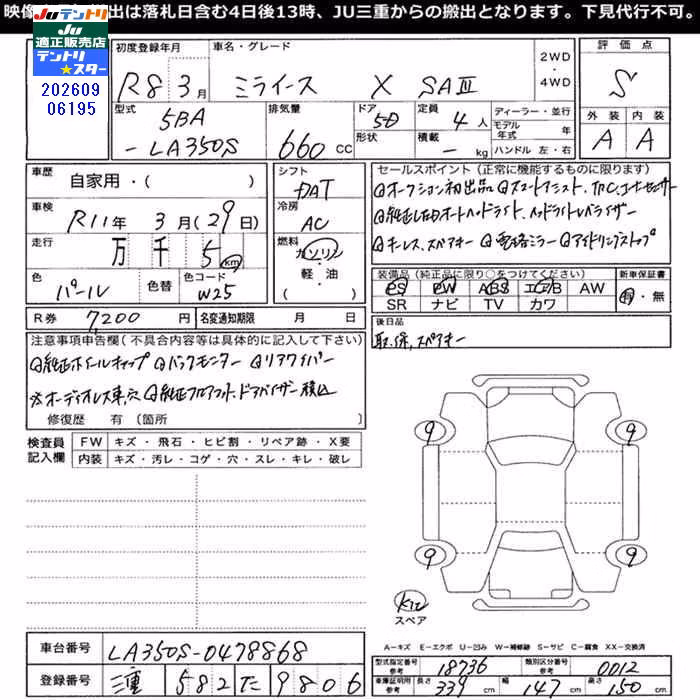 映像 出は落札日含む4日後13時、JU三重からの搬出となります。下見代行不可。
JUテントリ
適正販売店
テントリ
★スター
202609
06195
初度登録年月 車名・グレード 2WD・4WD 評価点
R8 3月 ミライース X SAⅢ S
型式 排気量 ドア 定員 ディーラー・並行 外装 内装
5BA 660 CC 5D 4人 モデル年式 年 A A
-LA350S 形状 積載 - kg ハンドル 左・右
車歴 自家用・( ) シフト DAT セールスポイント(正常に機能するものに限ります)
車検 R11年 3月(29日) 冷房 AC
走行 万 千 5 km 燃料 ガソリン・軽・油・( )
◎オークション初出品 ◎スマートアシスト、TRC、コーナーセンサー
◎純正LEDオートヘッドライト、ヘッドライトレベライザー
◎キーレス、スペアキー ◎電格ミラー ◎アイドリングストップ
色 パール 色替 色コード W25
装備品(純正品に限り○をつけてください) 新車保証書
PS PW ABS エアB AW 有・無
SR ナビ TV カワ
R券 7,200円 名変通知期限 月 日
後日品
取、保、スペアキー
注意事項申告欄(不具合内容等は具体的に記入して下さい)
◎純正ホイールキャップ ◎バックモニター ◎リアワイパー
※オーディオレス車、穴 ◎純正フロアマット、ドアバイザー積込
修復歴 有〔箇所 〕
検査員記入欄 FW キズ・飛石・ヒビ割・リペア跡・X要
内装 キズ・汚レ・コゲ・穴・スレ・キレ・破レ
9 9
9 9
スペア
A-キズ E-エクボ U-凹み W-補修跡 S-サビ C-腐食 XX-交換済
車台番号 LA350S-0478868
登録番号 三重 582 た 9806
型式指定番号参考 18736 類別区分番号参考 0012
車庫証明用参考 長さ 339 cm 幅 147 cm 高さ 150 cm